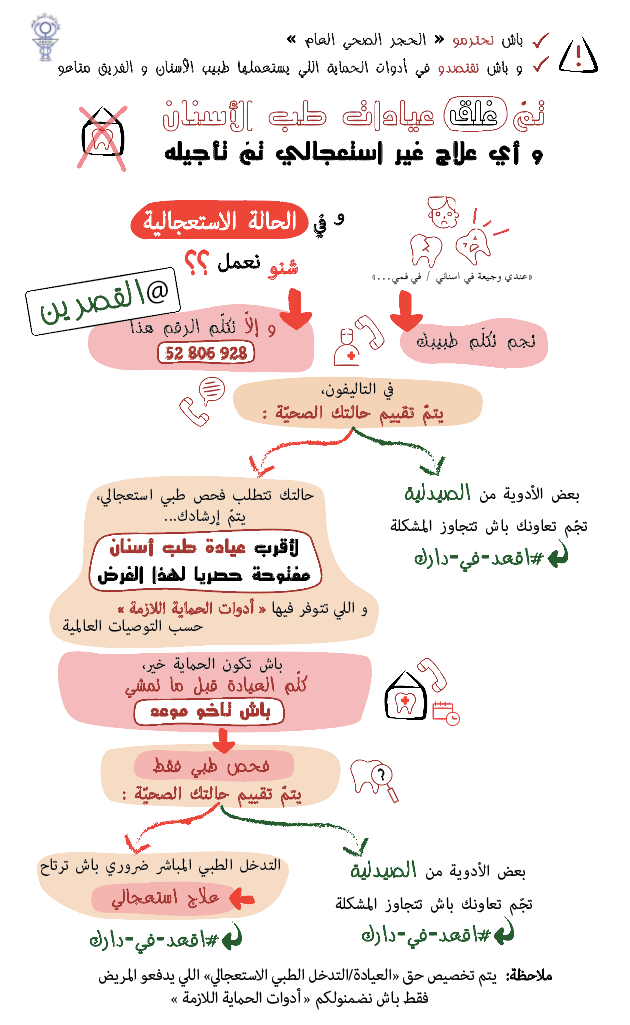 باش نحترمو « الحجر الصحي العام »
و باش نقتصدو في أدوات الحماية اللي يستعملها طبيب الأسنان و الفريق متاعو
تمّ غلق عيادات طب الأسنان
و أي علاج غير استعجالي تمّ تأجيله
و في الحالة الاستعجالية
شنو نعمل ؟؟
«عندي وجيعة في اسناني / في فمي...»
@القصرين
نجم نكلّم طبيبك
و إلاّ نكلّم الرقم هذا
52 806 928
في التاليفون،
يتمّ تقييم حالتك الصحيّة :
بعض الأدوية من الصيدلية
تجّم تعاونك باش تتجاوز المشكلة
#اقعد-في-دارك
حالتك تتطلب فحص طبي استعجالي،
يتمّ إرشادك...
لأقرب عيادة طب أسنان
مفتوحة حصريا لهذا الغرض
و اللي تتوفر فيها « أدوات الحماية اللازمة »
حسب التوصيات العالمية
باش تكون الحماية خير،
كلّم العيادة قبل ما تمشي
باش تاخو موعد
فحص طبي فقط
يتمّ تقييم حالتك الصحيّة :
بعض الأدوية من الصيدلية
تجّم تعاونك باش تتجاوز المشكلة
#اقعد-في-دارك
التدخل الطبي المباشر ضروري باش ترتاح
علاج استعجالي
#اقعد-في-دارك
ملاحظة: يتم تخصيص حق «العيادة/التدخل الطبي الاستعجالي» اللي يدفعو المريض
فقط باش نضمنولكم « أدوات الحماية اللازمة »